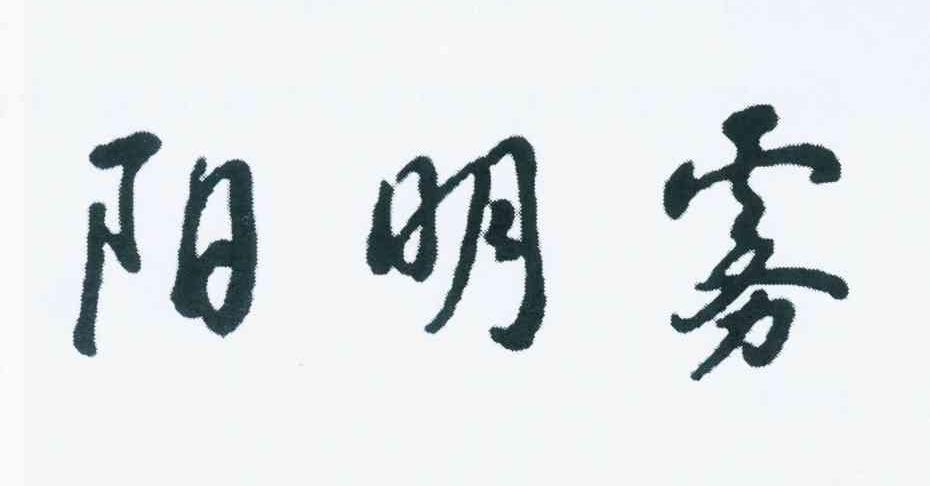 阳明雾